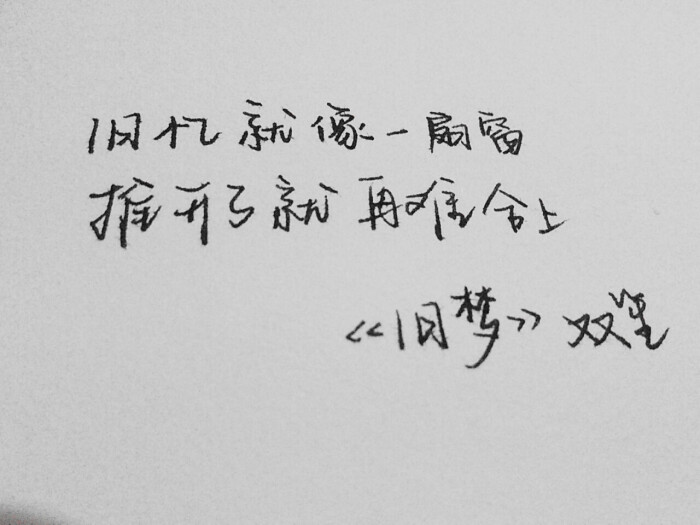 旧忆就像一扇窗
推开了就再难合上
《旧梦》双笙